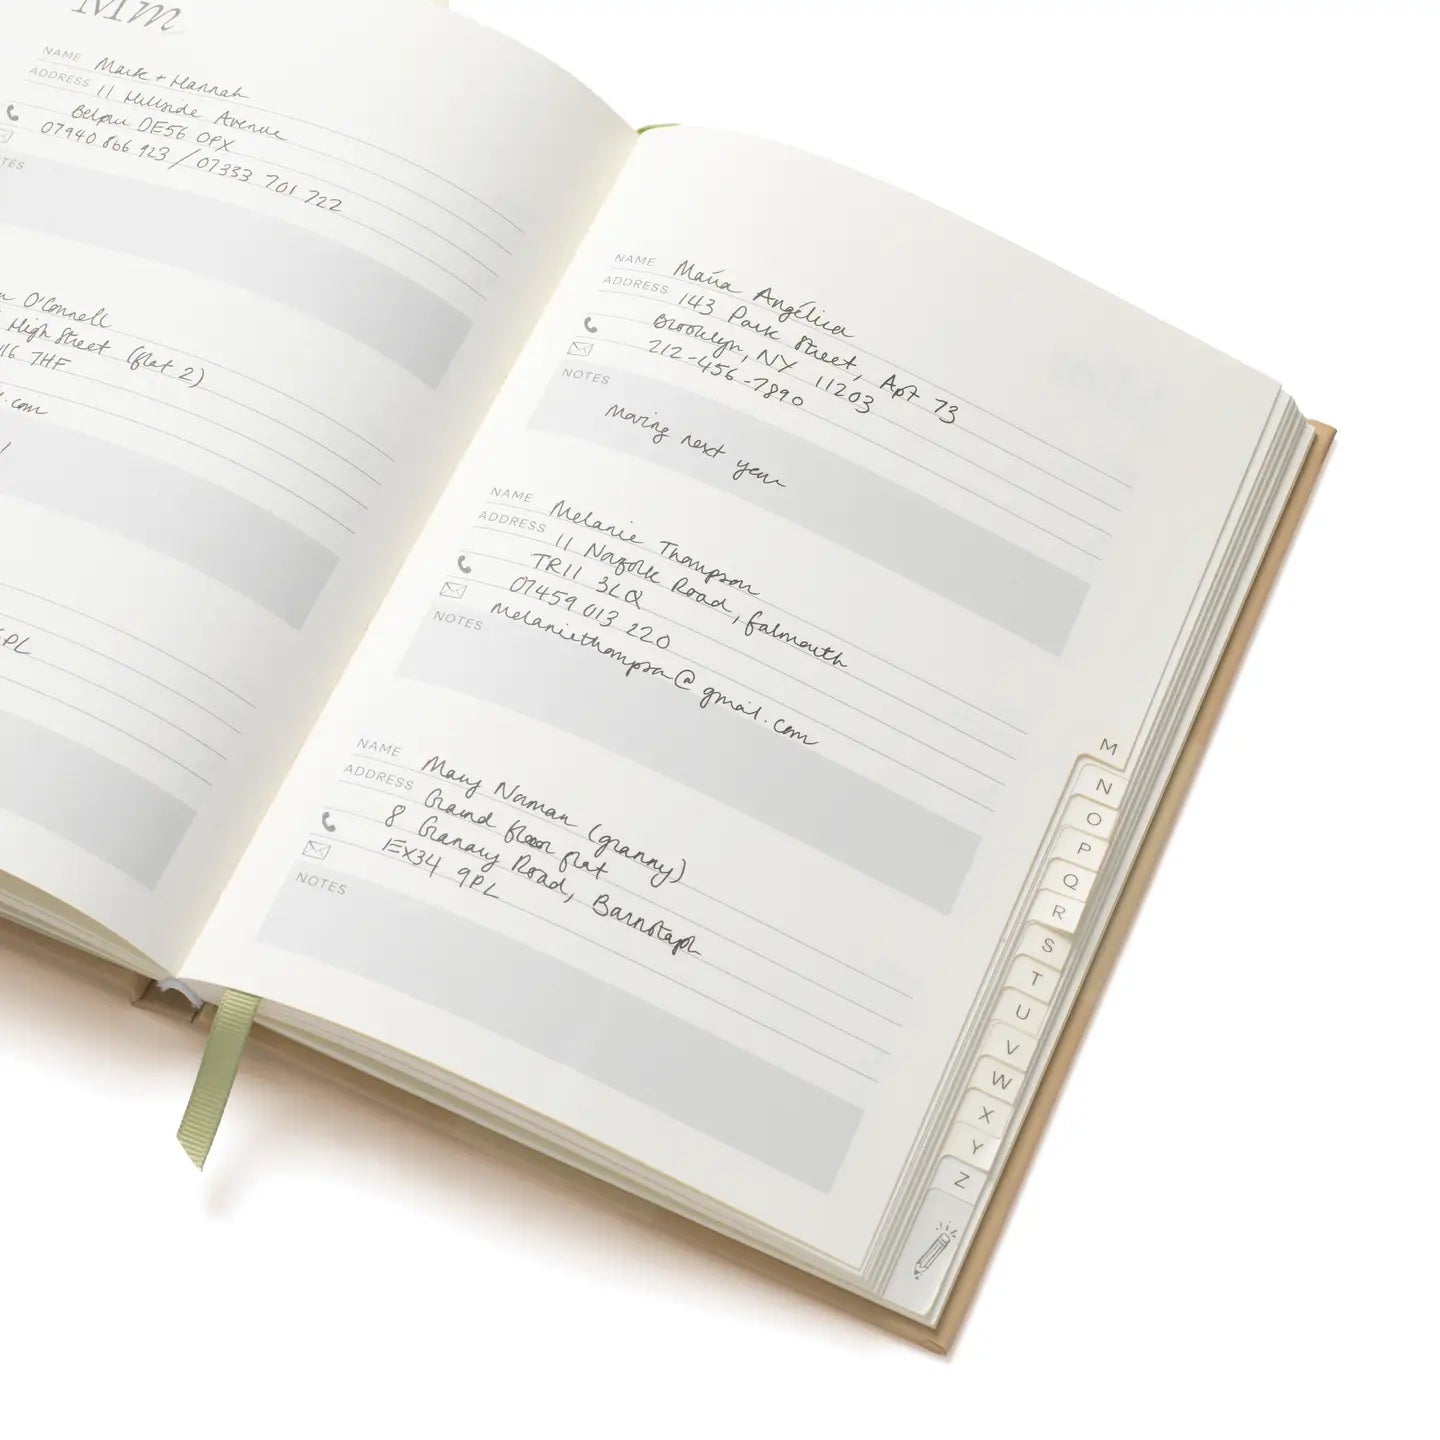 Mm
NAME Mark + Hannah
ADDRESS 11 Hillside Avenue
Belper DE56 0PX
07940 866 923 / 07333 701 722
O'Connell
High Street (flat 2)
7HF
.com
NAME María Angélica
ADDRESS 143 Park Street, Apt 73
Brooklyn, NY 11203
212-456-7890
NOTES
Moving next year
NAME Melanie Thompson
ADDRESS 11 Norfolk Road, Falmouth
TR11 3LQ
07459 013 220
melaniethompson@gmail.com
NOTES
NAME Mary Norman (granny)
ADDRESS Ground floor flat
8 Granary Road, Barnstaple
EX34 9PL
NOTES
M
N
O
P
Q
R
S
T
U
V
W
X
Y
Z